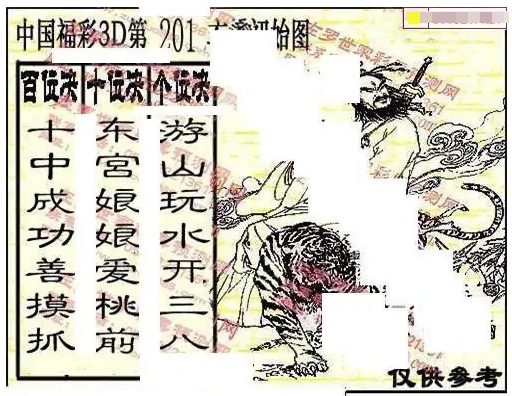 中国福彩3D第 201 始图
百位决 十位决 个位决
十中成功善摸抓
东宫娘娘爱桃前
游山玩水开三八
仅供参考